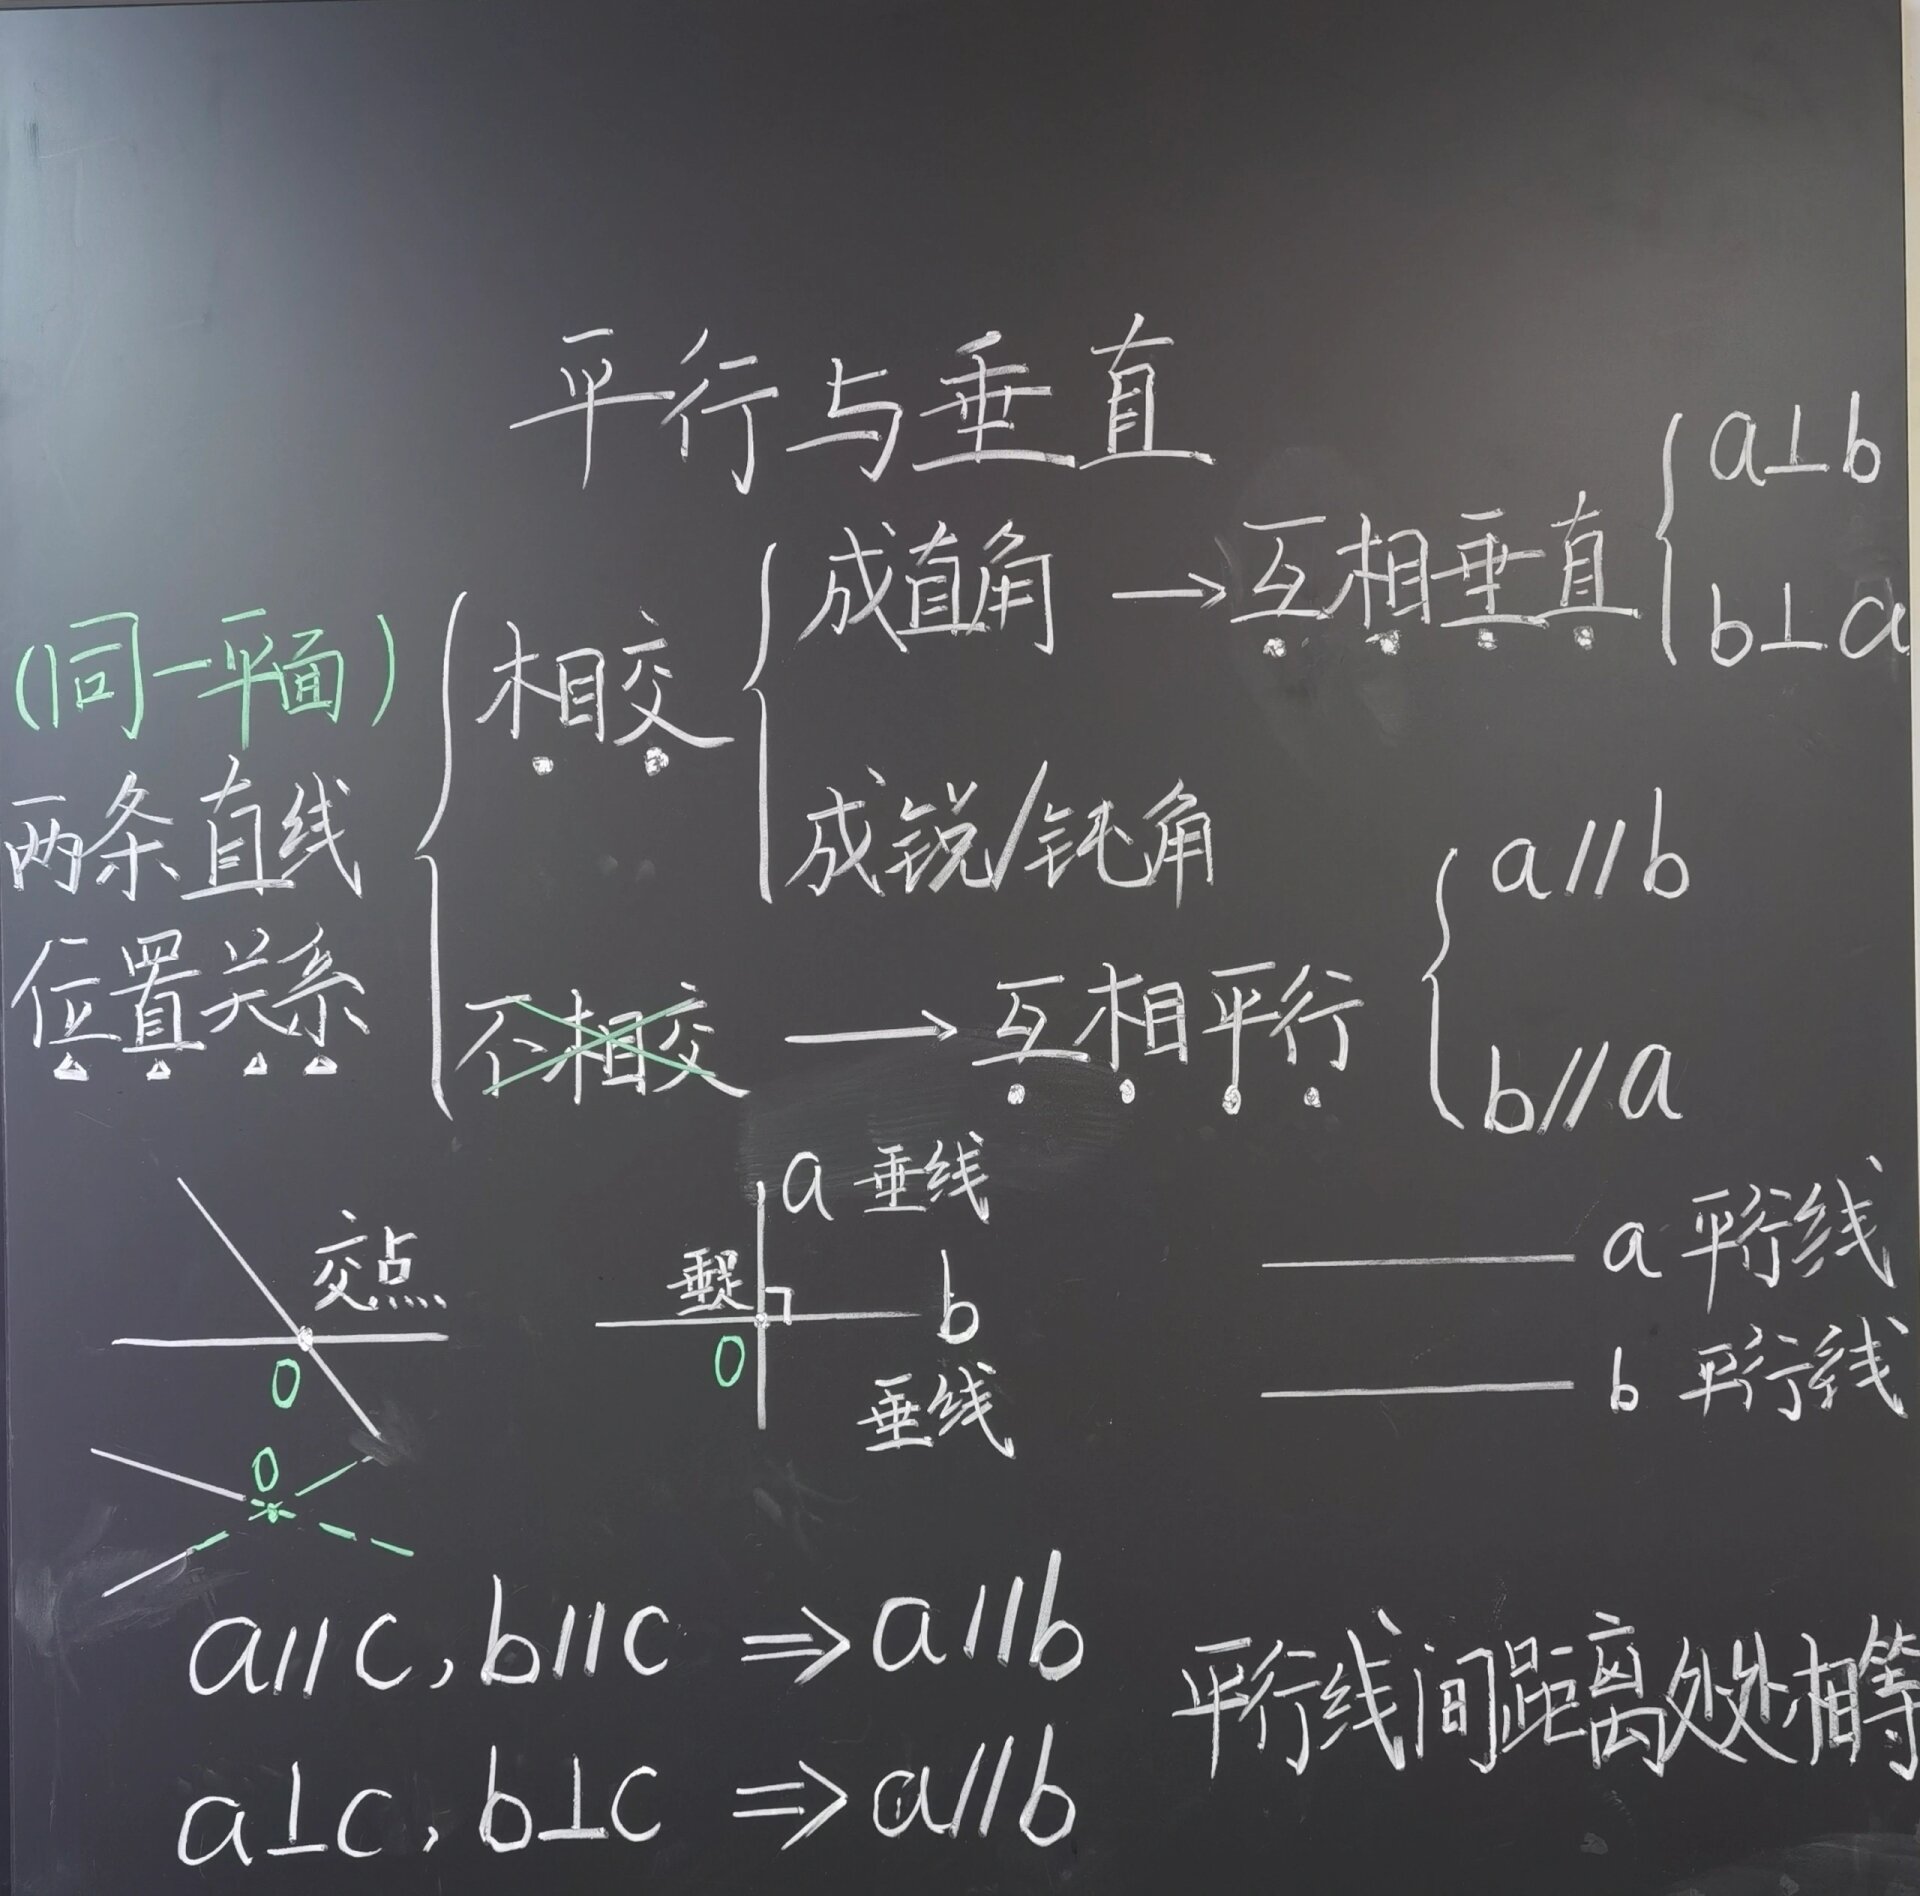 平行与垂直
(同一平面)
两条直线
位置关系
相交
成直角 → 互相垂直
a⊥b
b⊥a
成锐/钝角
不相交 → 互相平行
a//b
b//a
交点
O
O
a 垂线
垂足
b
O
垂线
a 平行线
b 平行线
a//c, b//c ⇒ a//b
a⊥c, b⊥c ⇒ a//b
平行线间距离处处相等